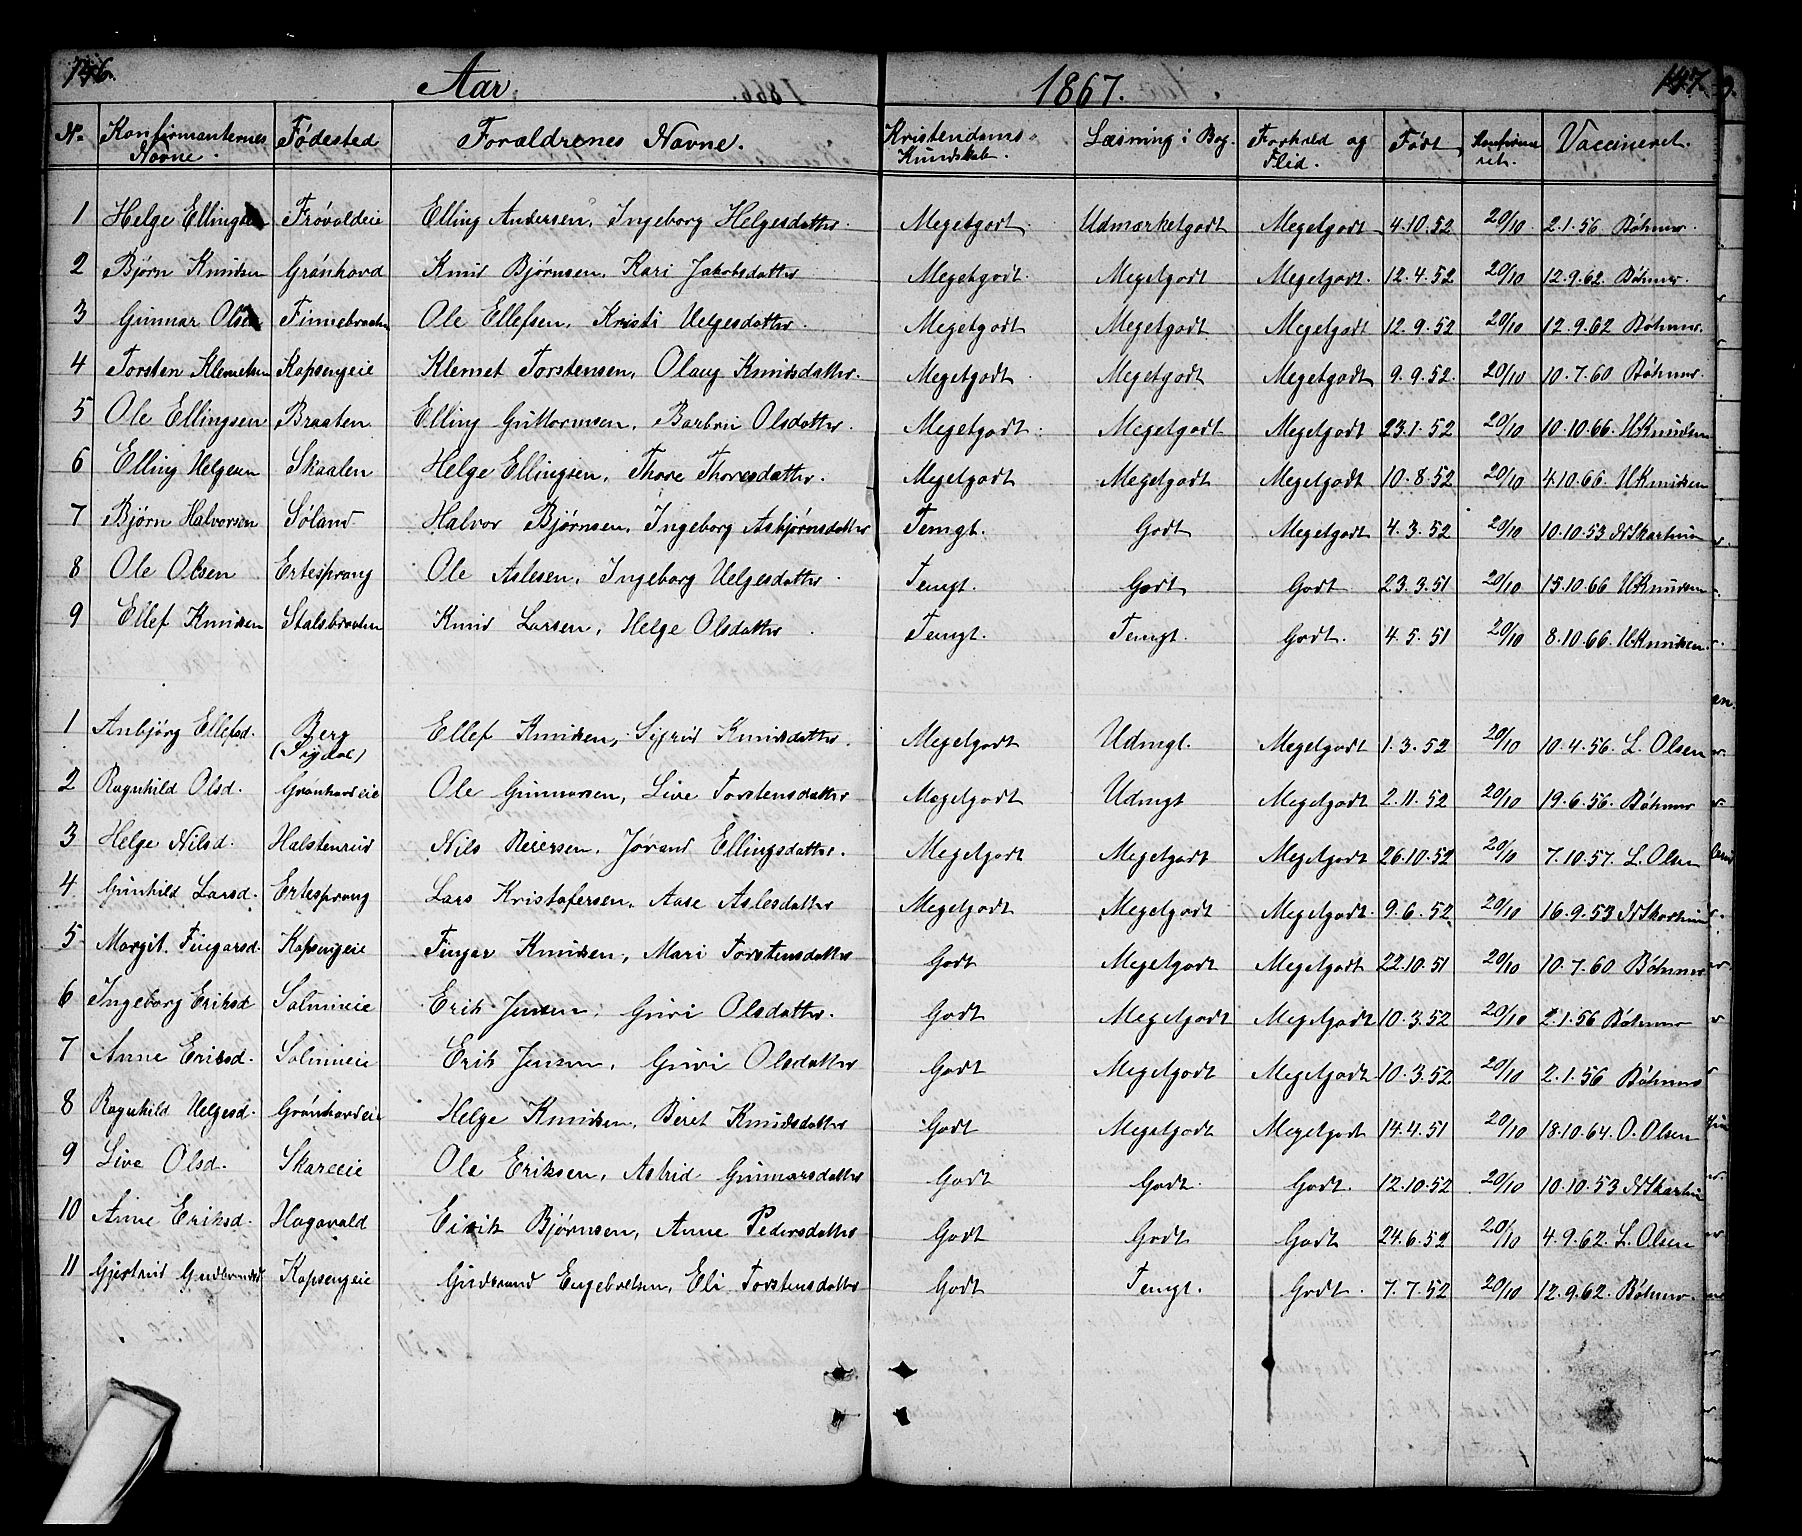 146. Aar 1867. 147.
N. Konfirmanternes Navne. Fødested Forældrenes Navne. Kristendoms-Kundskab. Læsning i Bog. Forhold og Flid. Født Konfirmeret. Vaccineret.
1 Helge Ellingsen Trøvoldeie Elling Andersen, Ingeborg Helgesdatter. Megetgodt. Udmærketgodt Megetgodt 4.10.52 20/10 2.1.56 Bøhmer.
2 Bjørn Knudsen Grønhovd Knud Bjørnsen, Kari Jakobsdatter Megetgodt. Megetgodt Megetgodt. 12.4.52 20/10 12.9.62. Bøhmer.
3 Gunnar Olsen Finnebraaten Ole Ellefsen, Kristi Helgesdatter. Megetgodt Megetgodt Megetgodt 12.9.52 20/10 12.9.62 Bøhmer.
4 Torsten Klemetsen Kopsengeie Klemet Torstensen, Olaug Knudsdatter. Megetgodt Megetgodt Megetgodt 9.9.52. 20/10 10.7.60 Bøhmer.
5 Ole Ellingsen Braaten Elling Guttormsen, Barbro Olsdatter. Megetgodt. Megetgodt Megetgodt 23.1.52 20/10 10.10.66. H.Knudsen
6 Elling Helgesen Skaalen Helge Ellingsen, Thore Thoresdatter. Megetgodt Megetgodt Megetgodt 10.8.52 20/10 4.10.66. H.Knudsen
7 Bjørn Halvorsen Søland Halvor Bjørnsen, Ingeborg Asbjørnsdatter Temgt. Godt Megetgodt 4.3.52 20/10 10.10.53 N.Skartum
8 Ole Olsen Ertesprang Ole Aslesen, Ingeborg Helgesdatter Temgt. Godt Godt 23.3.51 20/10 15.10.66 H.Knudsen
9 Ellef Knudsen Stalsbraaten Knud Larsen, Helge Olsdatter. Temgt. Temgt. Godt. 4.5.51 20/10 8.10.66. H.Knudsen.
1 Anbjørg Ellefsd. Berg (Sigdal) Ellef Knudsen, Sigrid Knudsdatter. Megetgodt Udmgt. Megetgodt 1.3.52 20/10 10.4.56. L. Olsen
2 Ragnhild Olsd. Grønhovdeie Ole Gunnarsen, Live Torstensdatter Megetgodt Udmgt Megetgodt 2.11.52 20/10 19.6.56. Bøhmer
3 Helge Nilsd. Halstenrud Nils Reiersen, Jørand Ellingsdatter. Megetgodt Megetgodt Megetgodt 26.10.52 20/10 7.10.57. L. Olsen
4 Gunhild Larsd. Ertesprang Lars Kristofersen, Aase Aslesdatter Megetgodt Megetgodt Megetgodt. 9.6.52 20/10 16.9.53 N.Skartum
5 Margit. Fingarsd. Kopsengeie Fingar Knudsen, Mari Torstensdatter Godt Megetgodt Megetgodt 22.10.51 20/10 10.7.60 Bøhmer
6 Ingeborg Eriksd Solumeie Erik Jensen, Guri Olsdatter. Godt Megetgodt Megetgodt 10.3.52 20/10 2.1.56 Bøhmer
7 Anne Eriksd. Solumeie Erik Jensen, Guri Olsdatter Godt Megetgodt Megetgodt 10.3.52 20/10 2.1.56 Bøhmer
8 Ragnhild Helgesd. Grønhovdeie Helge Knudsen, Beret Knudsdatter Godt Megetgodt Megetgodt 14.4.51 20/10 18.10.64. O. Olsen
9 Live Olsd. Skareeie Ole Eriksen, Astrid Gunnarsdatter Godt Godt. Godt. 12.10.52 20/10 10.10.53 N.Skartum
10 Anne Eriksd. Hagavald Eirik Bjørnsen, Anne Pedersdatter Godt Godt Godt 24.6.52 20/10 4.9.62. L. Olsen
11 Gjertrud Gudbrandsd Kopsengeie Gudbrand Engebretsen, Eli Torstensdatter Godt Temgt. Godt. 7.7.52 20/10 12.9.62. Bøhmer.